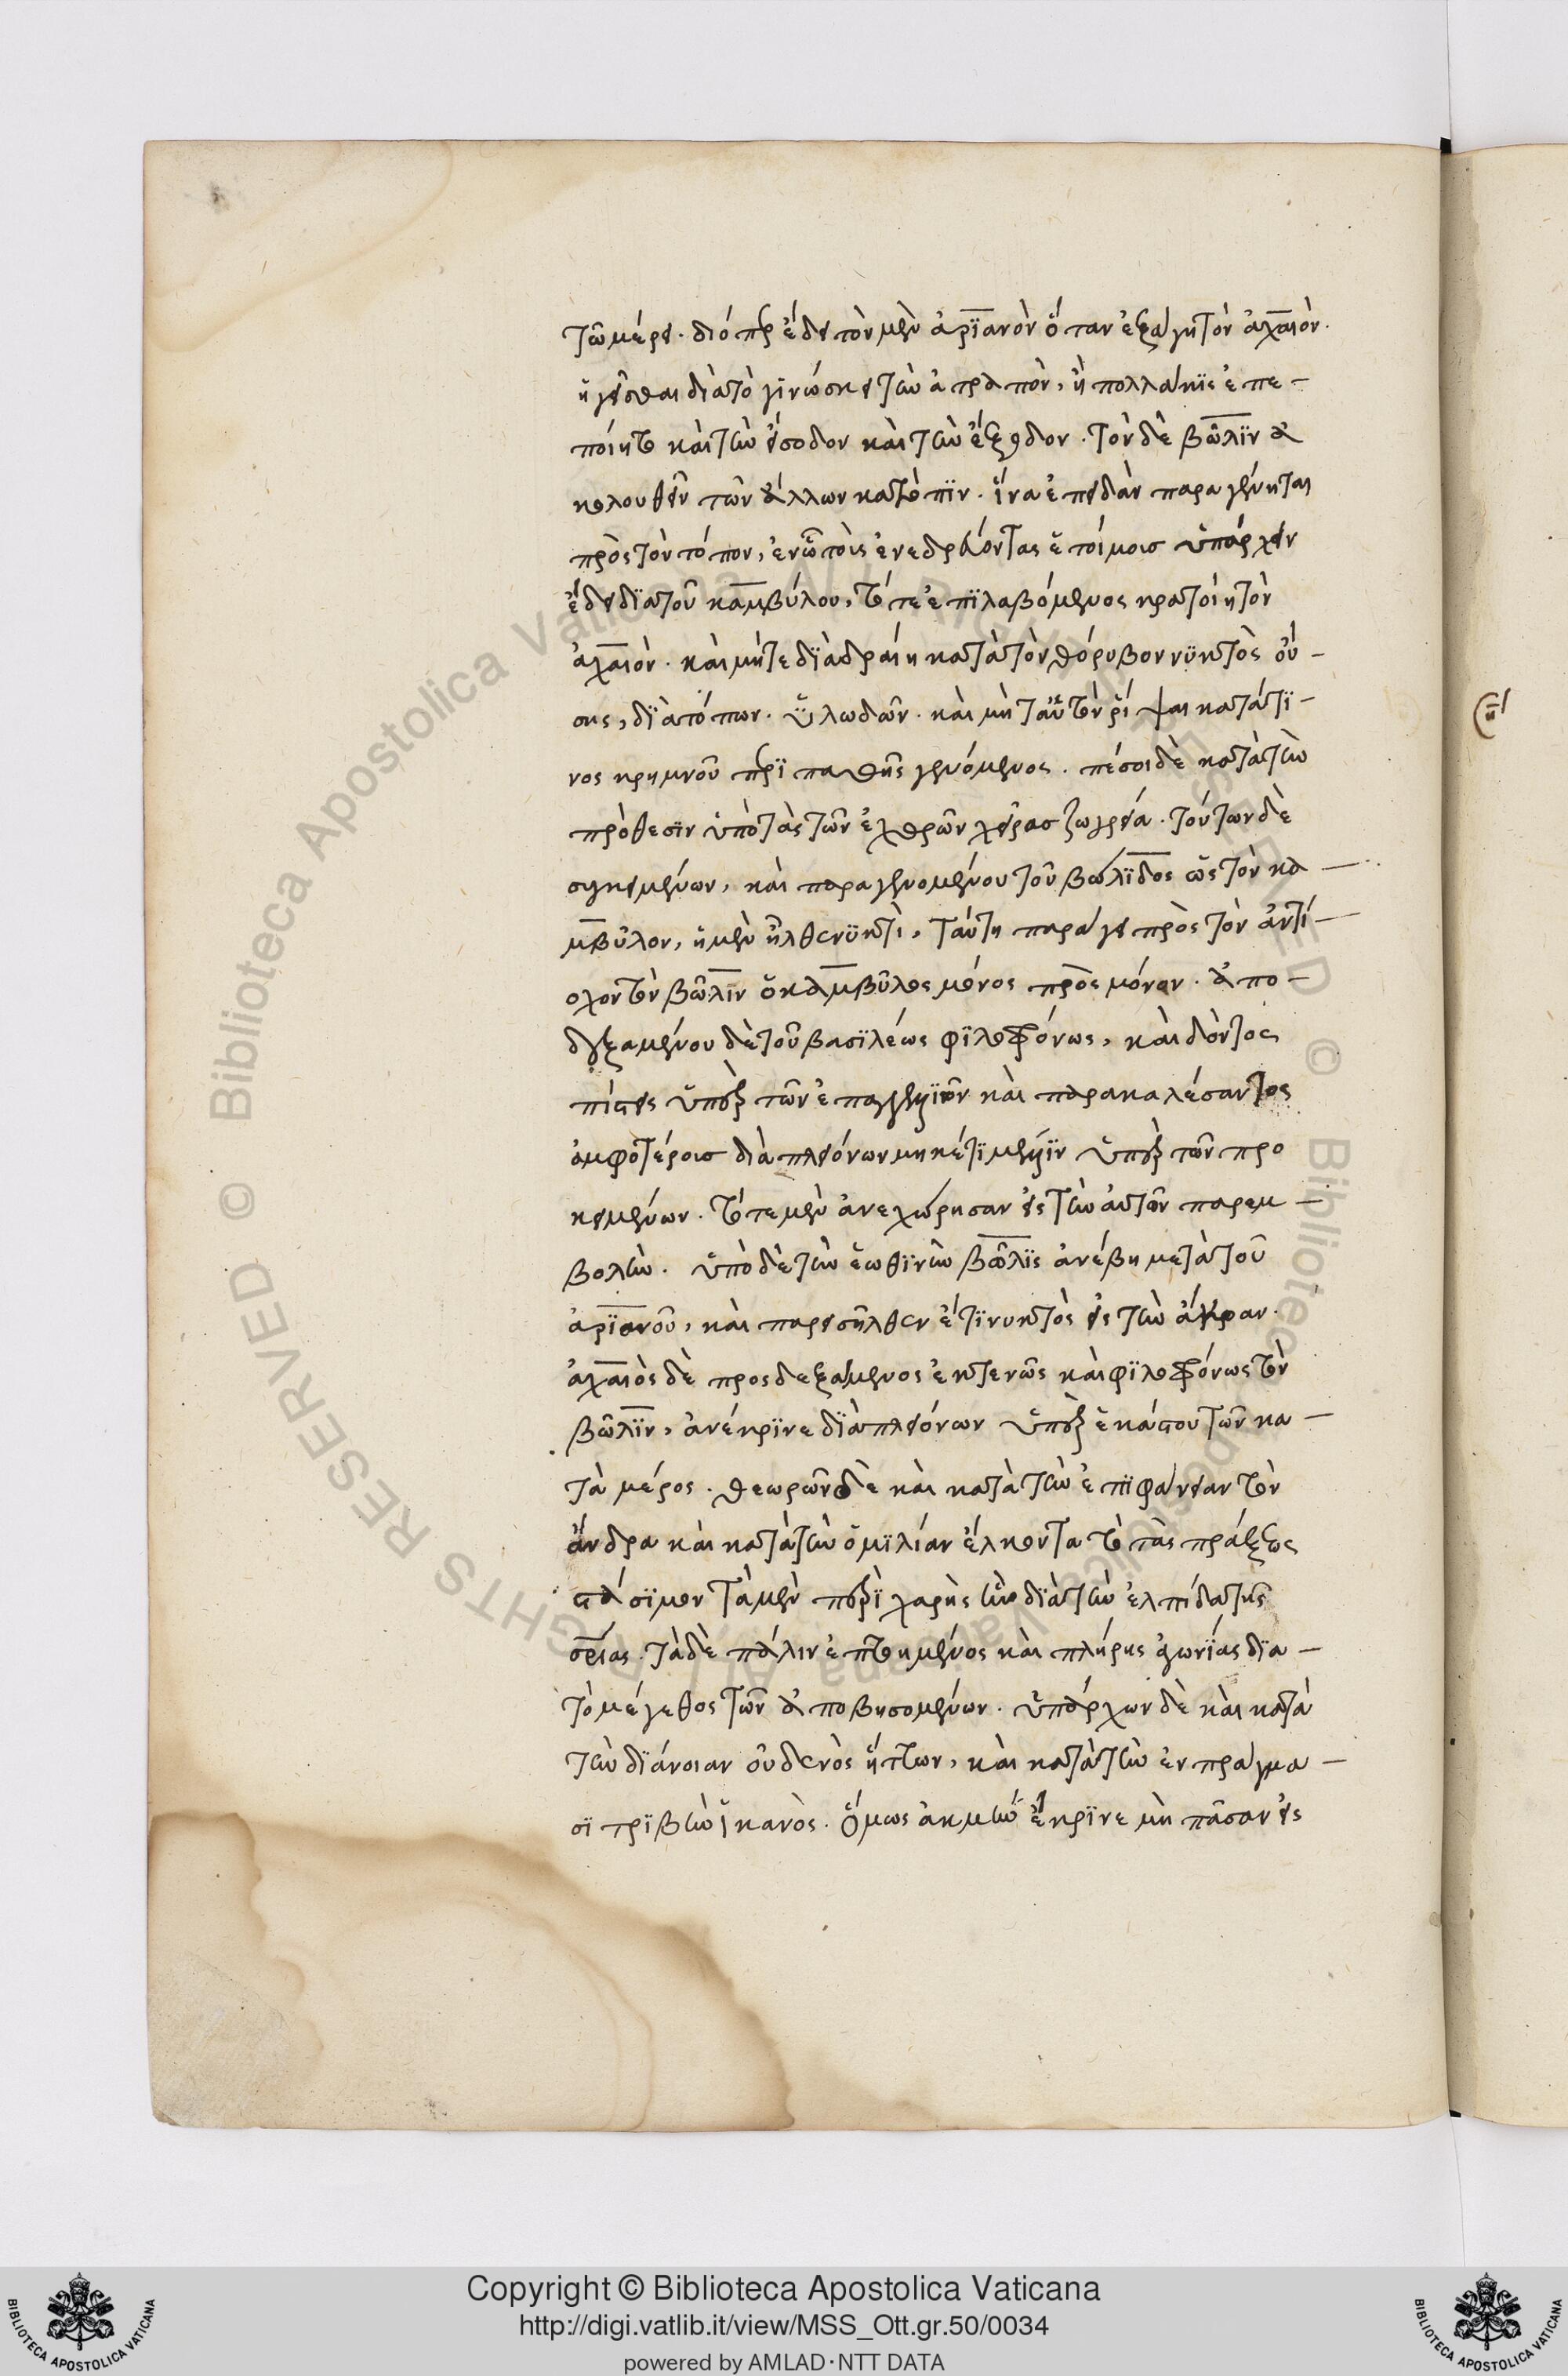 τῶ μέρει. διόπερ ἔδει τὸν μὲν ἀρϊανὸν ὅταν ἐξάγη τὸν ἀχαιὸν.
ἡγεῖσθαι διὰ τὸ γινώσκειν τὴν ἀτραπὸν, ἢ πολλάκϊς ἐπε-
ποίητο καὶ τὴν εἴσοδον καὶ τὴν ἔξοδον. τὸν δὲ βῶλϊν ἀ
κολουθεῖν τῶν ἄλλων κατόπϊν. ἵνα ἐπειδὰν παραγένηται
πρὸς τὸν τόπον, ἐν ὧ τοὺς ἐνεδρεύοντας ἑτοίμοισ ὑπάρχειν
ἔδει δϊὰ τοῦ καμβύλου, τότε ἐπϊλαβόμενος κρατοίη τὸν
ἀχαιὸν. καὶ μήτε δϊαδραίη κατὰ τὸν θόρυβον νϋκτὸς οὔ-
σης, δϊὰ τόπων ὑλωδῶν. καὶ μὴ ταὐτὸν ῥίψαι κατά τϊ-
νος κρημνοῦ περϊπαθὴς γενόμενος. πέσοι δὲ κατὰ τὴν
πρόθεσϊν ὑπὸ τὰς τῶν ἐχθρῶν χεῖρασ ζωγρεία. τούτων δὲ
συγκειμένων, καὶ παραγενομένου τοῦ βώλϊδος ὡς τὸν κα-
μβύλον, ἧ μὲν ἦλθε νϋκτὶ, ταύτη παράγει πρὸς τὸν ἀντί-
οχον τὸν βῶλϊν ὁ καμβύλος μόνος πρὸς μόνον. ἀπο-
δεξαμένου δὲ τοῦ βασϊλέως φϊλοφρόνως, καὶ δόντος
πίστεις ὑπὲρ τῶν ἐπαγγελϊῶν καὶ παρακαλέσαντος
ἀμφοτέροισ διὰ πλειόνων μηκέτϊ μέλλϊν ὑπὲρ τῶν προ
κειμένων. τότε μὲν ἀνεχώρησαν εἰς τὴν αὐτῶν παρεμ-
βολὴν. ὑπὸ δὲ τὴν ἑωθϊνὴν βῶλϊς ἀνέβη μετὰ τοῦ
ἀρϊανοῦ, καὶ παρεισῆλθεν ἔτϊ νυκτὸς εἰς τὴν ἄκραν.
ἀχαιὸς δὲ προσδεξάμενος ἐκτενῶς καὶ φϊλοφρόνως τὸν
βῶλϊν, ἀνέκρϊνε δϊὰ πλειόνων ὑπὲρ ἑκάστου τῶν κα-
τὰ μέρος. θεωρῶν δὲ καὶ κατὰ τὴν ἐπϊφάνειαν τὸν
ἄνδρα καὶ κατὰ τὴν ὁμϊλίαν ἕλκοντα τὸ τὰς πράξεως
στάσϊμον τὰ μὲν περϊχαρὴς ἦν δϊὰ τὴν ἐλπίδα τῆς
σρίας. τὰ δὲ πάλιν ἐπτοημένος καὶ πλήρης ἀγωνίας δϊα-
τὸ μέγεθος τῶν ἀποβησομένων. ὑπάρχων δὲ καὶ κατὰ
τὴν δϊάνοιαν οὐδενὸς ἥττων, καὶ κατὰ τὴν ἐν πράγμα-
σϊ τρϊβὴν ἱκανὸς. ὅμως ἀκμὴν ἔκρϊνε μὴ πᾶσαν εἰς
Copyright © Biblioteca Apostolica Vaticana
http://digi.vatlib.it/view/MSS_Ott.gr.50/0034
powered by AMLAD·NTT DATA